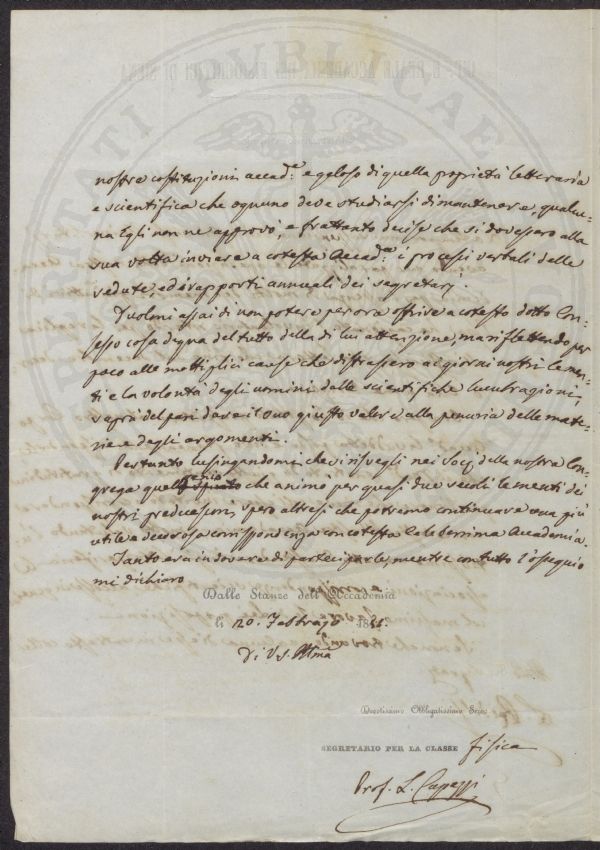 VERITATI PVBLICAE
nostre costituzioni accad.e e geloso di quella proprietà letteraria
e scientifica che ognuno deve studiarsi di mantenere, qualcu-
na Egli non ne approvò, e frattanto decise che si dovessero alla
sua volta inviare a cotesta Accad.a i processi verbali delle
sedute, ed i rapporti annuali dei segretarj.
Duolmi assai di non potere per ora offrire a cotesto dotto Con-
sesso cosa degna del tutto della di lui attenzione, ma riflettendo per
poco alle moltiplici cause che distrassero ai giorni nostri le men-
ti e la volontà degli uomini dalle scientifiche lucubrazioni,
saprà del pari dare il suo giusto valore alla penuria delle mate-
rie e degli argomenti.
Pertanto lusingandomi che si risvegli nei Socj della nostra Con-
grega quel genio che animò per quasi due secoli le menti dei
nostri predecessori, spero altresì che potremo continuare una più
utile e decorosa corrispondenza con cotesta Celeberrima Accademia.
Tanto era in dovere di parteciparle, mentre con tutto l'ossequio
mi dichiaro
Dalle Stanze dell'Accademia
li 20. Febbrajo
Di V.S. Illma
Devotissimo Obbligatissimo Serv.
SEGRETARIO PER LA CLASSE fisica
Prof. L.